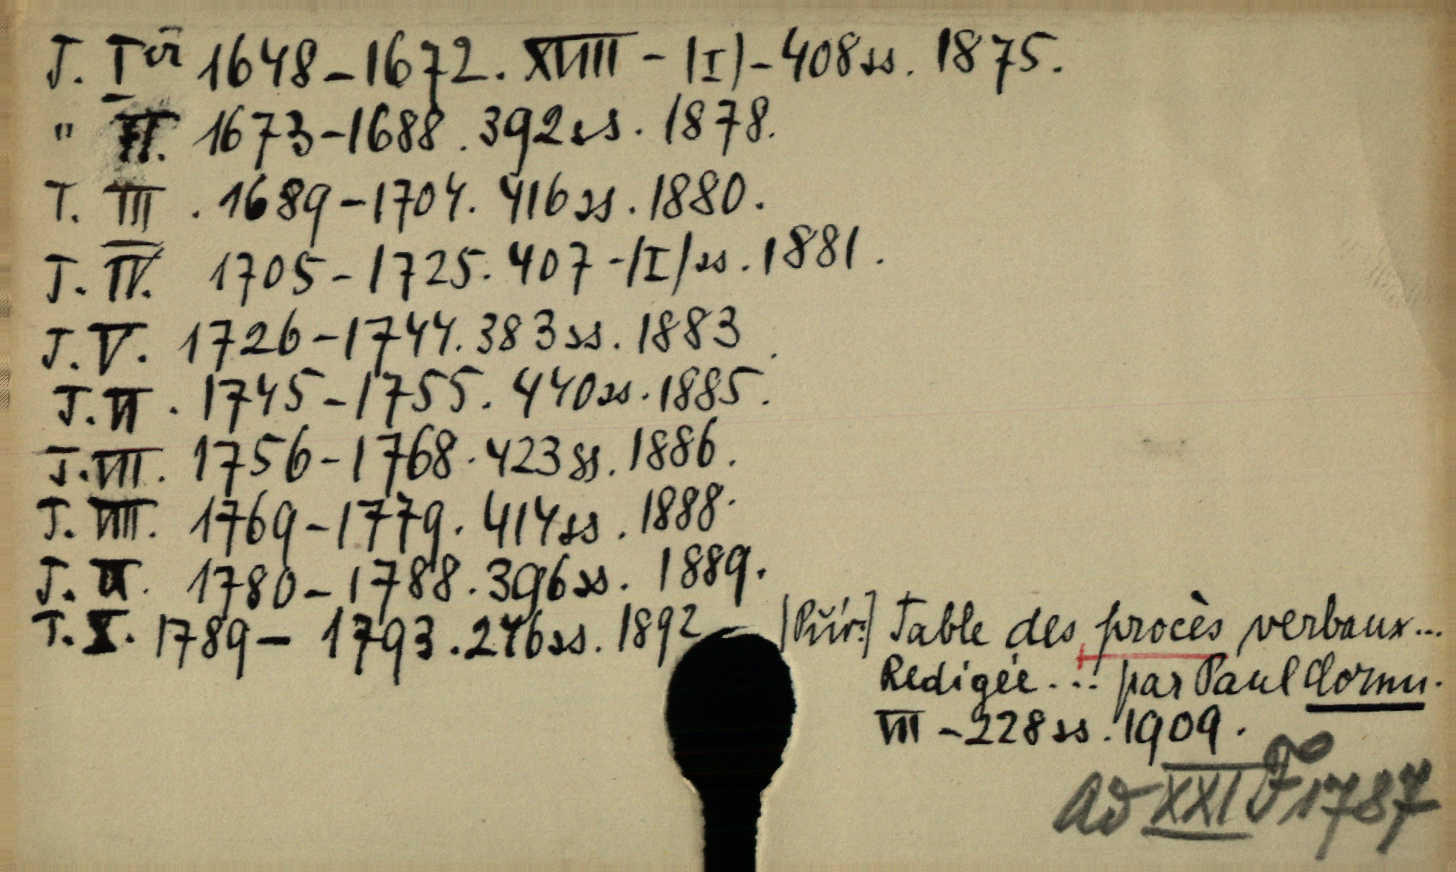 T. Ier 1648-1672. XVIII - (I) - 408 ss. 1875.
" II. 1673-1688. 392 ss. 1878.
T. III. 1689-1704. 416 ss. 1880.
T. IV. 1705-1725. 407-(I) ss. 1881.
T. V. 1726-1744. 383 ss. 1883.
T. VI. 1745-1755. 440 ss. 1885.
T. VII. 1756-1768. 423 ss. 1886.
T. VIII. 1769-1779. 414 ss. 1888.
T. IX. 1780-1788. 396 ss. 1889.
T. X. 1789- 1793. 246 ss. 1892
[Přír:] Table des procès verbaux...
Redigée... par Paul Cornu.
VIII - 228 ss. 1909.
ad XXI F 1787